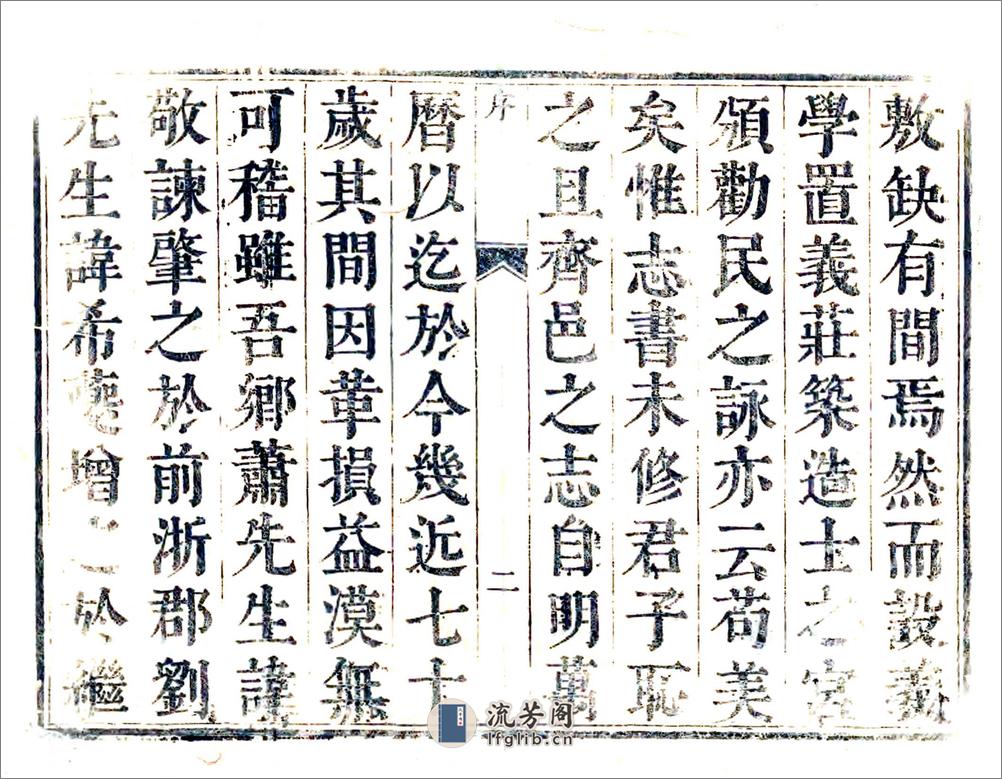 敷缺有間焉然而設義
學置義莊築造士之宮
頒勸民之詠亦云苟美
矣惟志書未修君子恥
之且齊邑之志自明萬
序
二
曆以迄於今幾近七十
歲其間因革損益漠無
可稽雖吾鄉蕭先生諱
敬諫肇之於前浙郡劉
先生諱希夔增之於繼
流芳阁
lfglib.cn